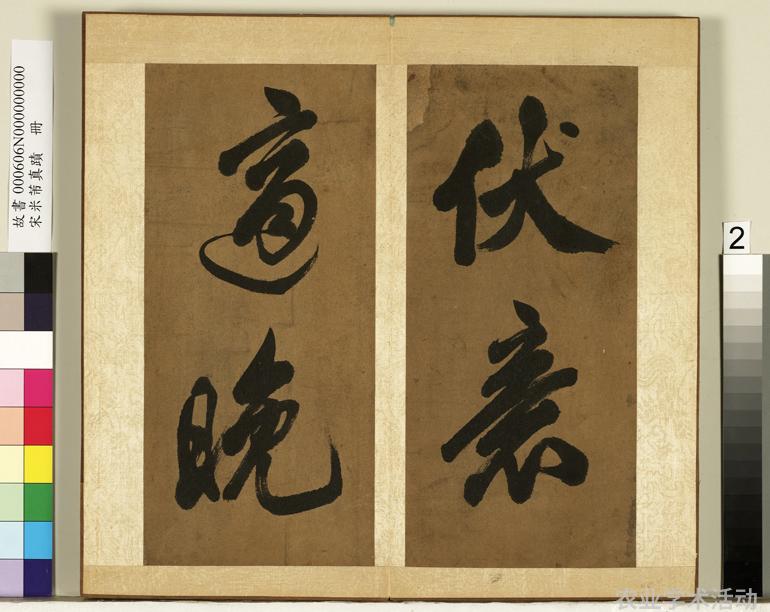 伏衰
適晚
故書 000606N000000000
宋米芾真蹟 冊
2
农业学术活动